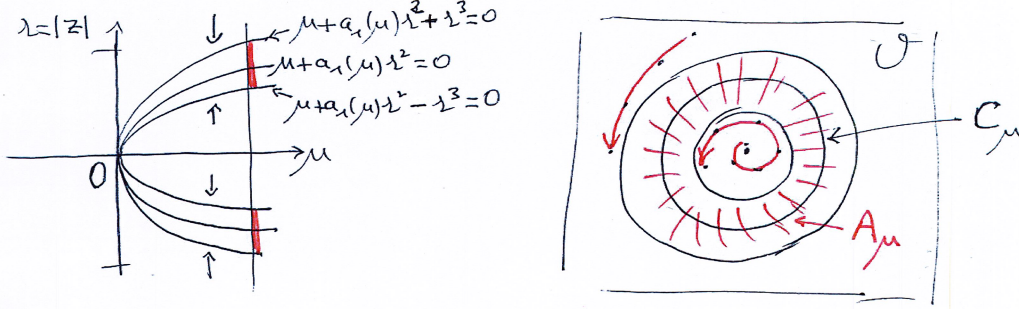 r=|z|
μ+a₁(μ)r²+r³=0
μ+a₁(μ)r²=0
μ+a₁(μ)r²-r³=0
0
μ
𝒱
C_μ
A_μ